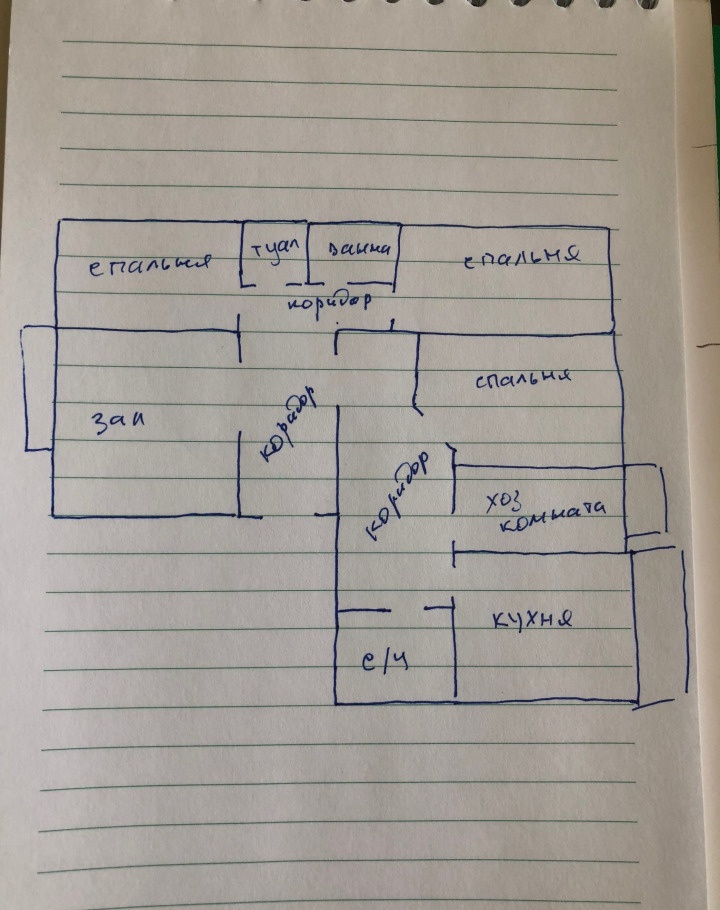 спальня
туал
ванна
спальня
коридор
спальня
зал
коридор
коридор
хоз
комната
кухня
с/ч